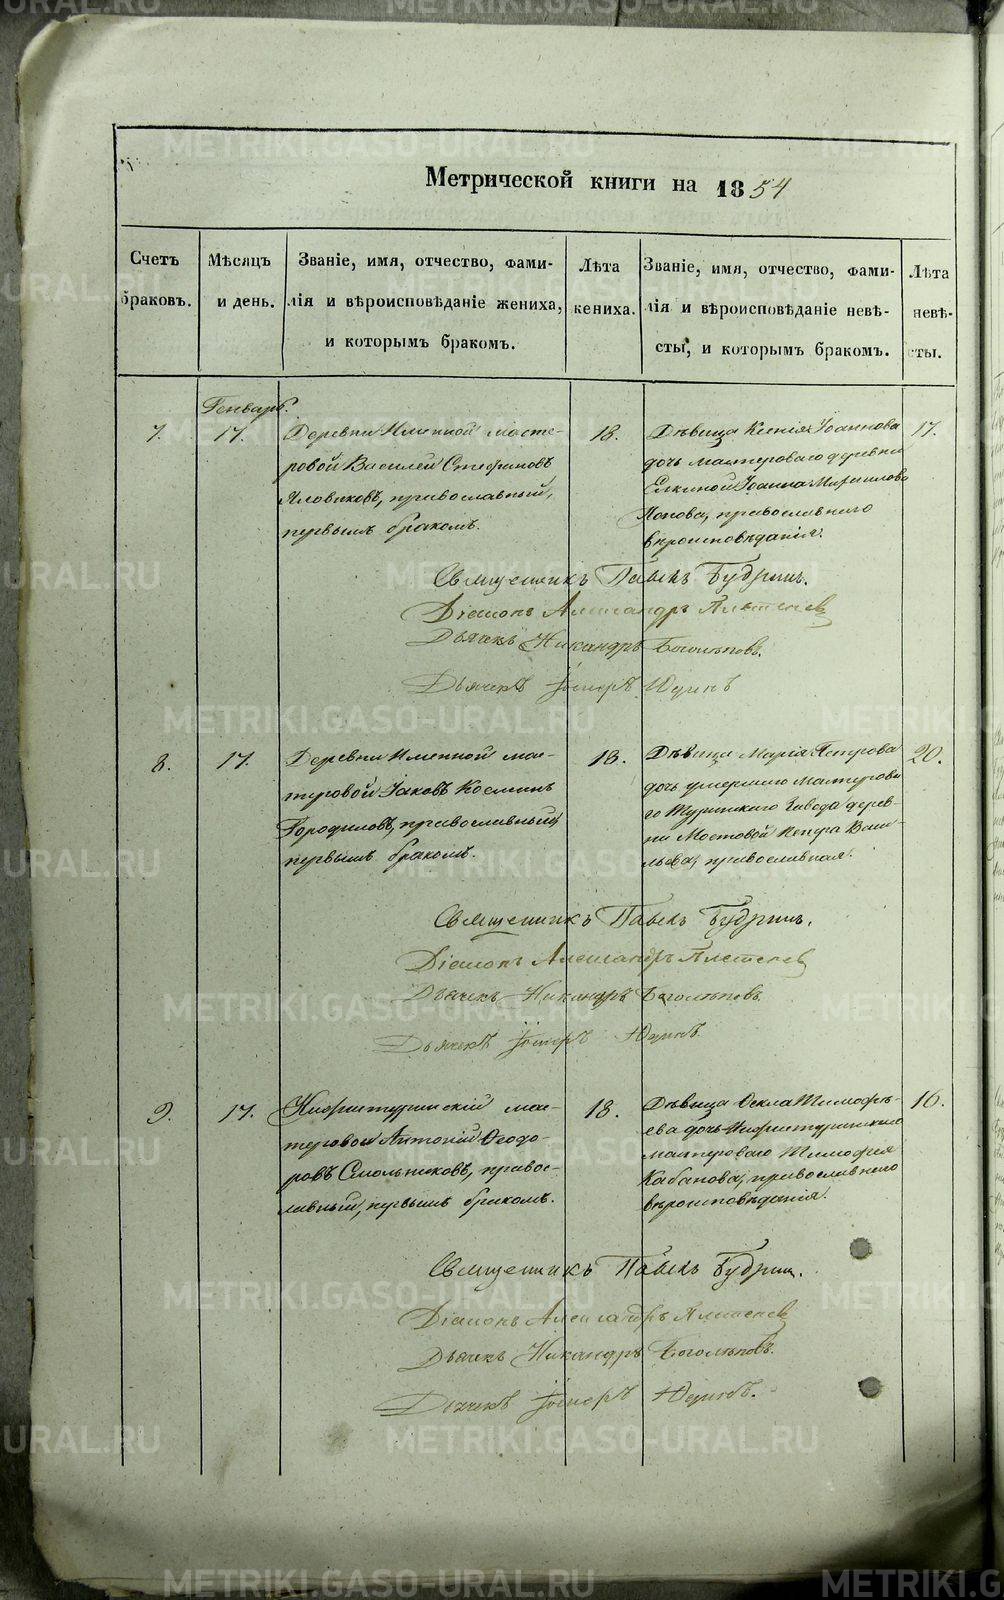 Метрической книги на 1854
Счетъ браковъ.
Мѣсяцъ и день.
Званіе, имя, отчество, фами-
лія и вѣроисповѣданіе жениха,
и которымъ бракомъ.
Лѣта
жениха.
Званіе, имя, отчество, фами-
лія и вѣроисповѣданіе невѣ-
сты, и которымъ бракомъ.
Лѣта
невѣ-
сты.
Генварь.
7.
17.
Деревни Именной масте-
ровой Василей Стефановъ
Яловиковъ, православный,
первымъ бракомъ.
18.
Дѣвица Ксенія Іоаннова
дочь мастероваго деревни
Елкиной Іоанна Михаилова
Попова, православнаго
вѣроисповѣданія.
17.
Священникъ Павелъ Будринъ.
Діаконъ Александръ Плетенев
Дьячекъ Никандръ Боголѣповъ.
Дьячекъ Юдинъ
8.
17.
Деревни Именной мас-
теровой Іаковъ Косминъ
Городиловъ, православный
первымъ бракомъ.
18.
Дѣвица Марія Петрова
дочь умершаго мастерова-
го Туринскаго Завода дерев-
ни Мостовой Петра Васи-
льева, православная.
20.
Священникъ Павелъ Будринъ.
Діаконъ Александръ Плетенев
Дьячекъ Никандръ Боголѣповъ.
Дьячекъ Юдинъ.
9.
17.
Нижнетуринскій мас-
теровой Антоній Ѳеодо-
ровъ Смольниковъ, правос-
лавный, первымъ бракомъ.
18.
Дѣвица Ѳекла Тимофѣ-
ева дочь Нижнетуринскаго
мастероваго Тимофея
Кабанова, православнаго
вѣроисповѣданія.
16.
Священникъ Павелъ Будрин.
Діаконъ Александръ Плетенев
Дьячекъ Никандръ Боголѣповъ.
Дьячекъ Юдинъ.
METRIKI.GASO-URAL.RU